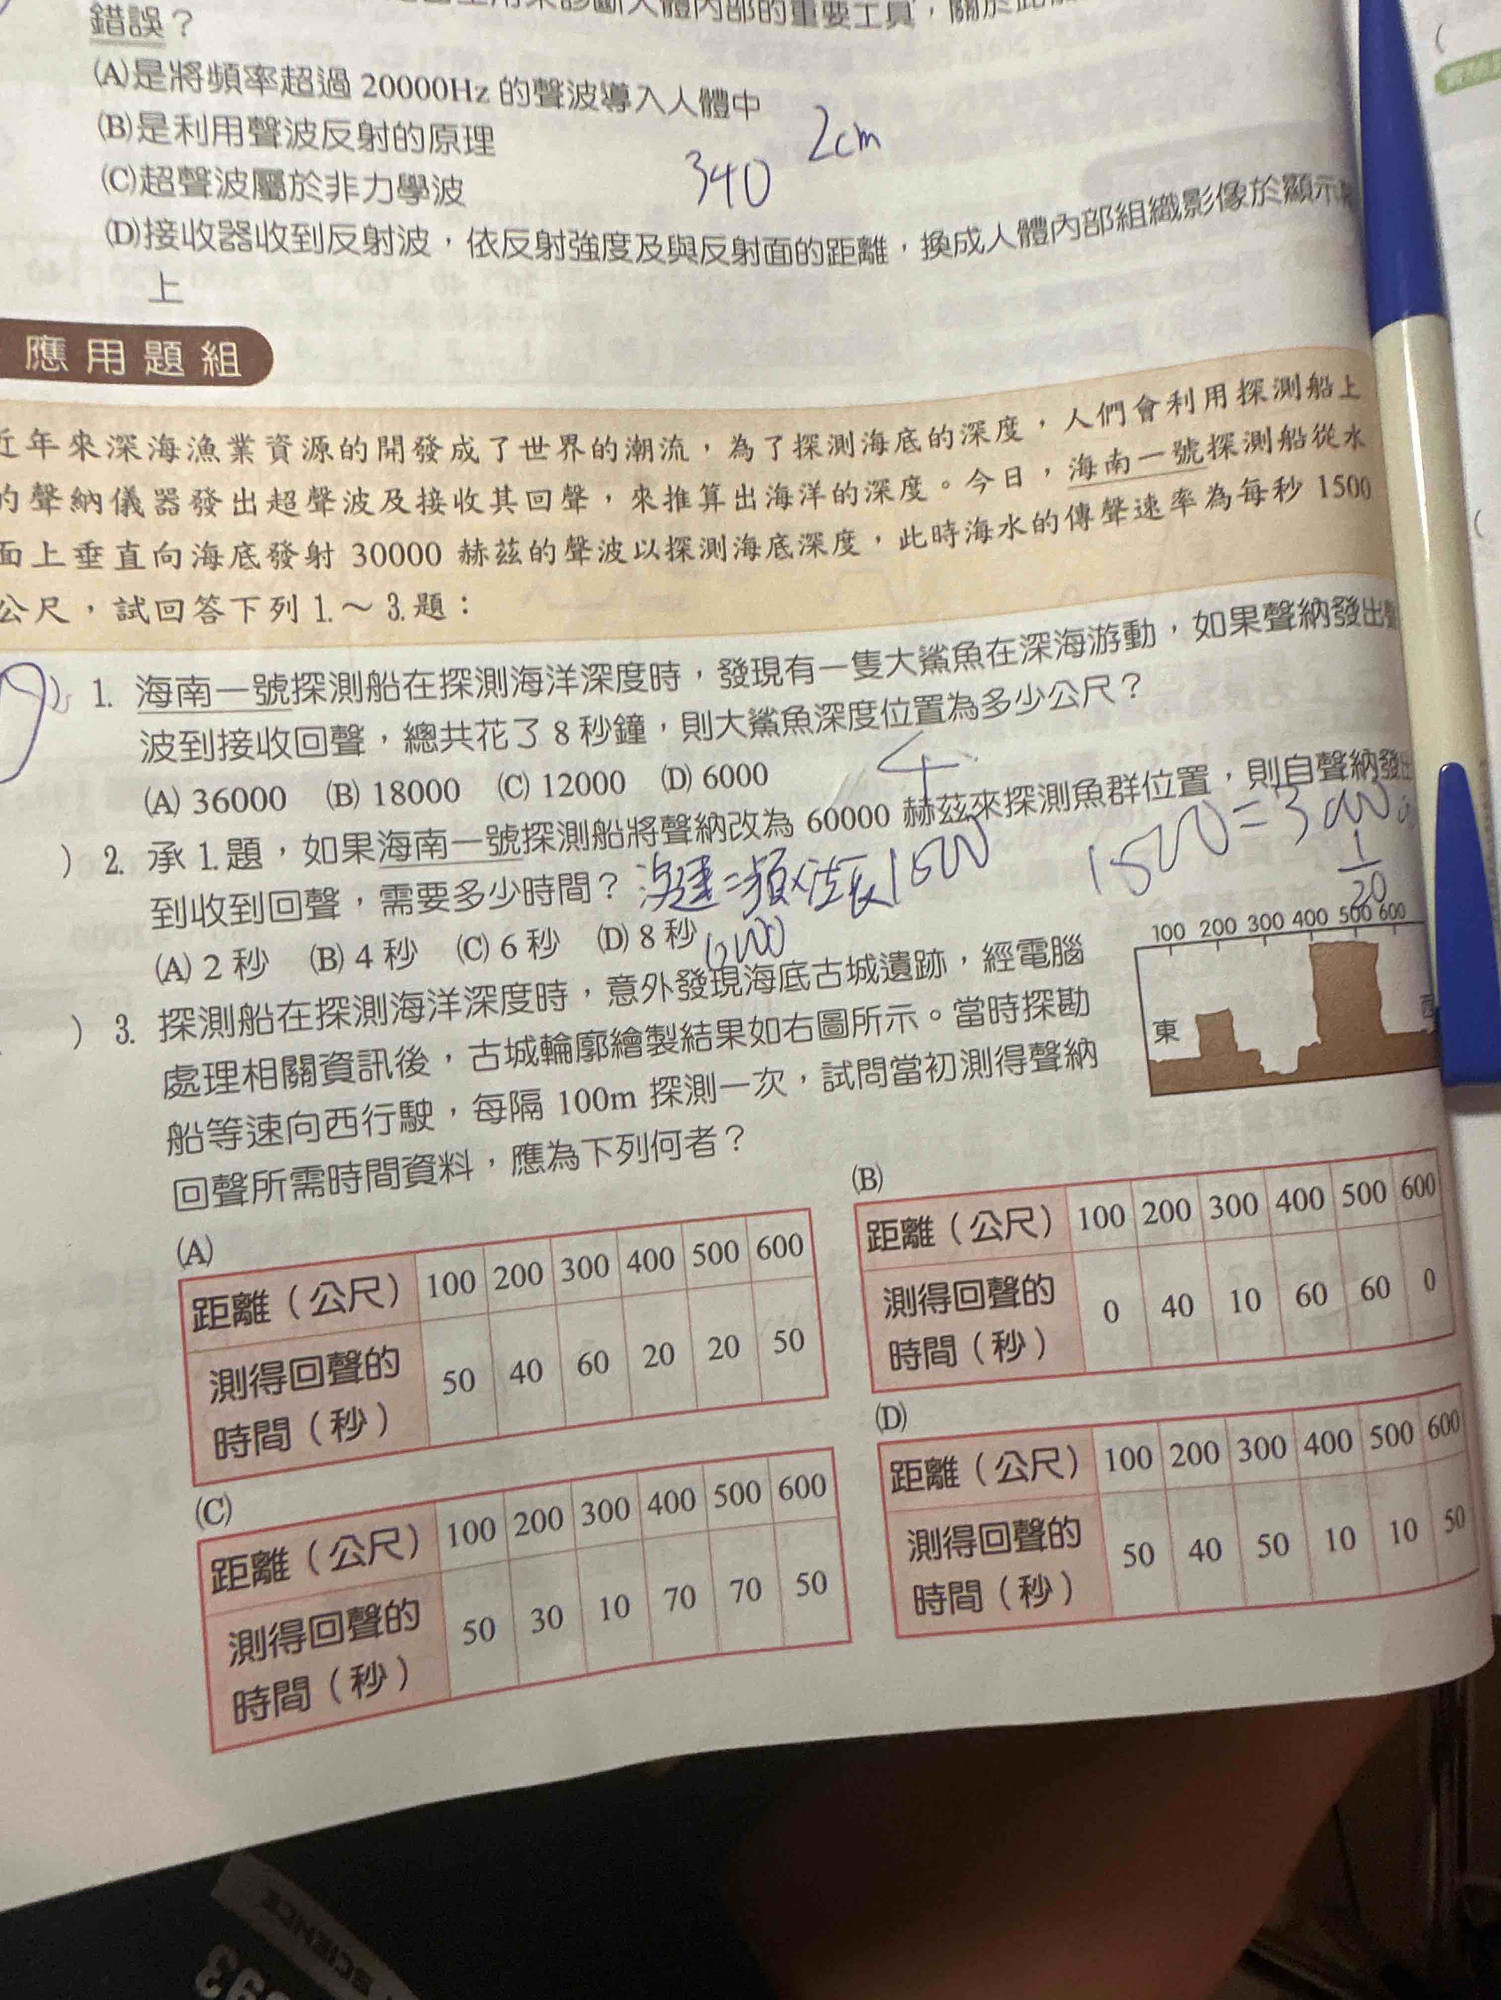 內部的重要工具，關於
錯誤？
(A)是將頻率超過 20000Hz 的聲波導入人體中
(B)是利用聲波反射的原理
2cm
340
(C)超聲波屬於非力學波
(D)接收器收到反射波，依反射強度及與反射面的距離，換成人體內部組織影像於顯示
上
應用題組
近年來深海漁業資源的開發成了世界的潮流，為了探測海底的深度，人們會利用探測船上
的聲納儀器發出超聲波及接收其回聲，來推算出海洋的深度。今日，海南一號探測船從水
面上垂直向海底發射 30000 赫茲的聲波以探測海底深度，此時海水的傳聲速率為每秒 1500
公尺，試回答下列 1.～3.題：
) 1. 海南一號探測船在探測海洋深度時，發現有一隻大鯊魚在深海游動，如果聲納發出
波到接收回聲，總共花了 8 秒鐘，則大鯊魚深度位置為多少公尺？
4
(A) 36000 (B) 18000 (C) 12000 (D) 6000
) 2. 承 1.題，如果海南一號探測船將聲納改為 60000 赫茲來探測魚群位置，則自聲納發出
到收到回聲，需要多少時間？
1500
1500=3000
1
20
(A) 2 秒 (B) 4 秒 (C) 6 秒 (D) 8 秒
) 3. 探測船在探測海洋深度時，意外發現海底古城遺跡，經電腦
處理相關資訊後，古城輪廓繪製結果如右圖所示。當時探勘
船等速向西行駛，每隔 100m 探測一次，試問當初測得聲納
回聲所需時間資料，應為下列何者？
100 200 300 400 500 600
東
(A)
距離（公尺） 100 200 300 400 500 600
測得回聲的
時間（秒） 50 40 60 20 20 50
(B)
距離（公尺） 100 200 300 400 500 600
測得回聲的
時間（秒） 0 40 10 60 60 0
(C)
距離（公尺） 100 200 300 400 500 600
測得回聲的
時間（秒） 50 30 10 70 70 50
(D)
距離（公尺） 100 200 300 400 500 600
測得回聲的
時間（秒） 50 40 50 10 10 50
SCIENCE